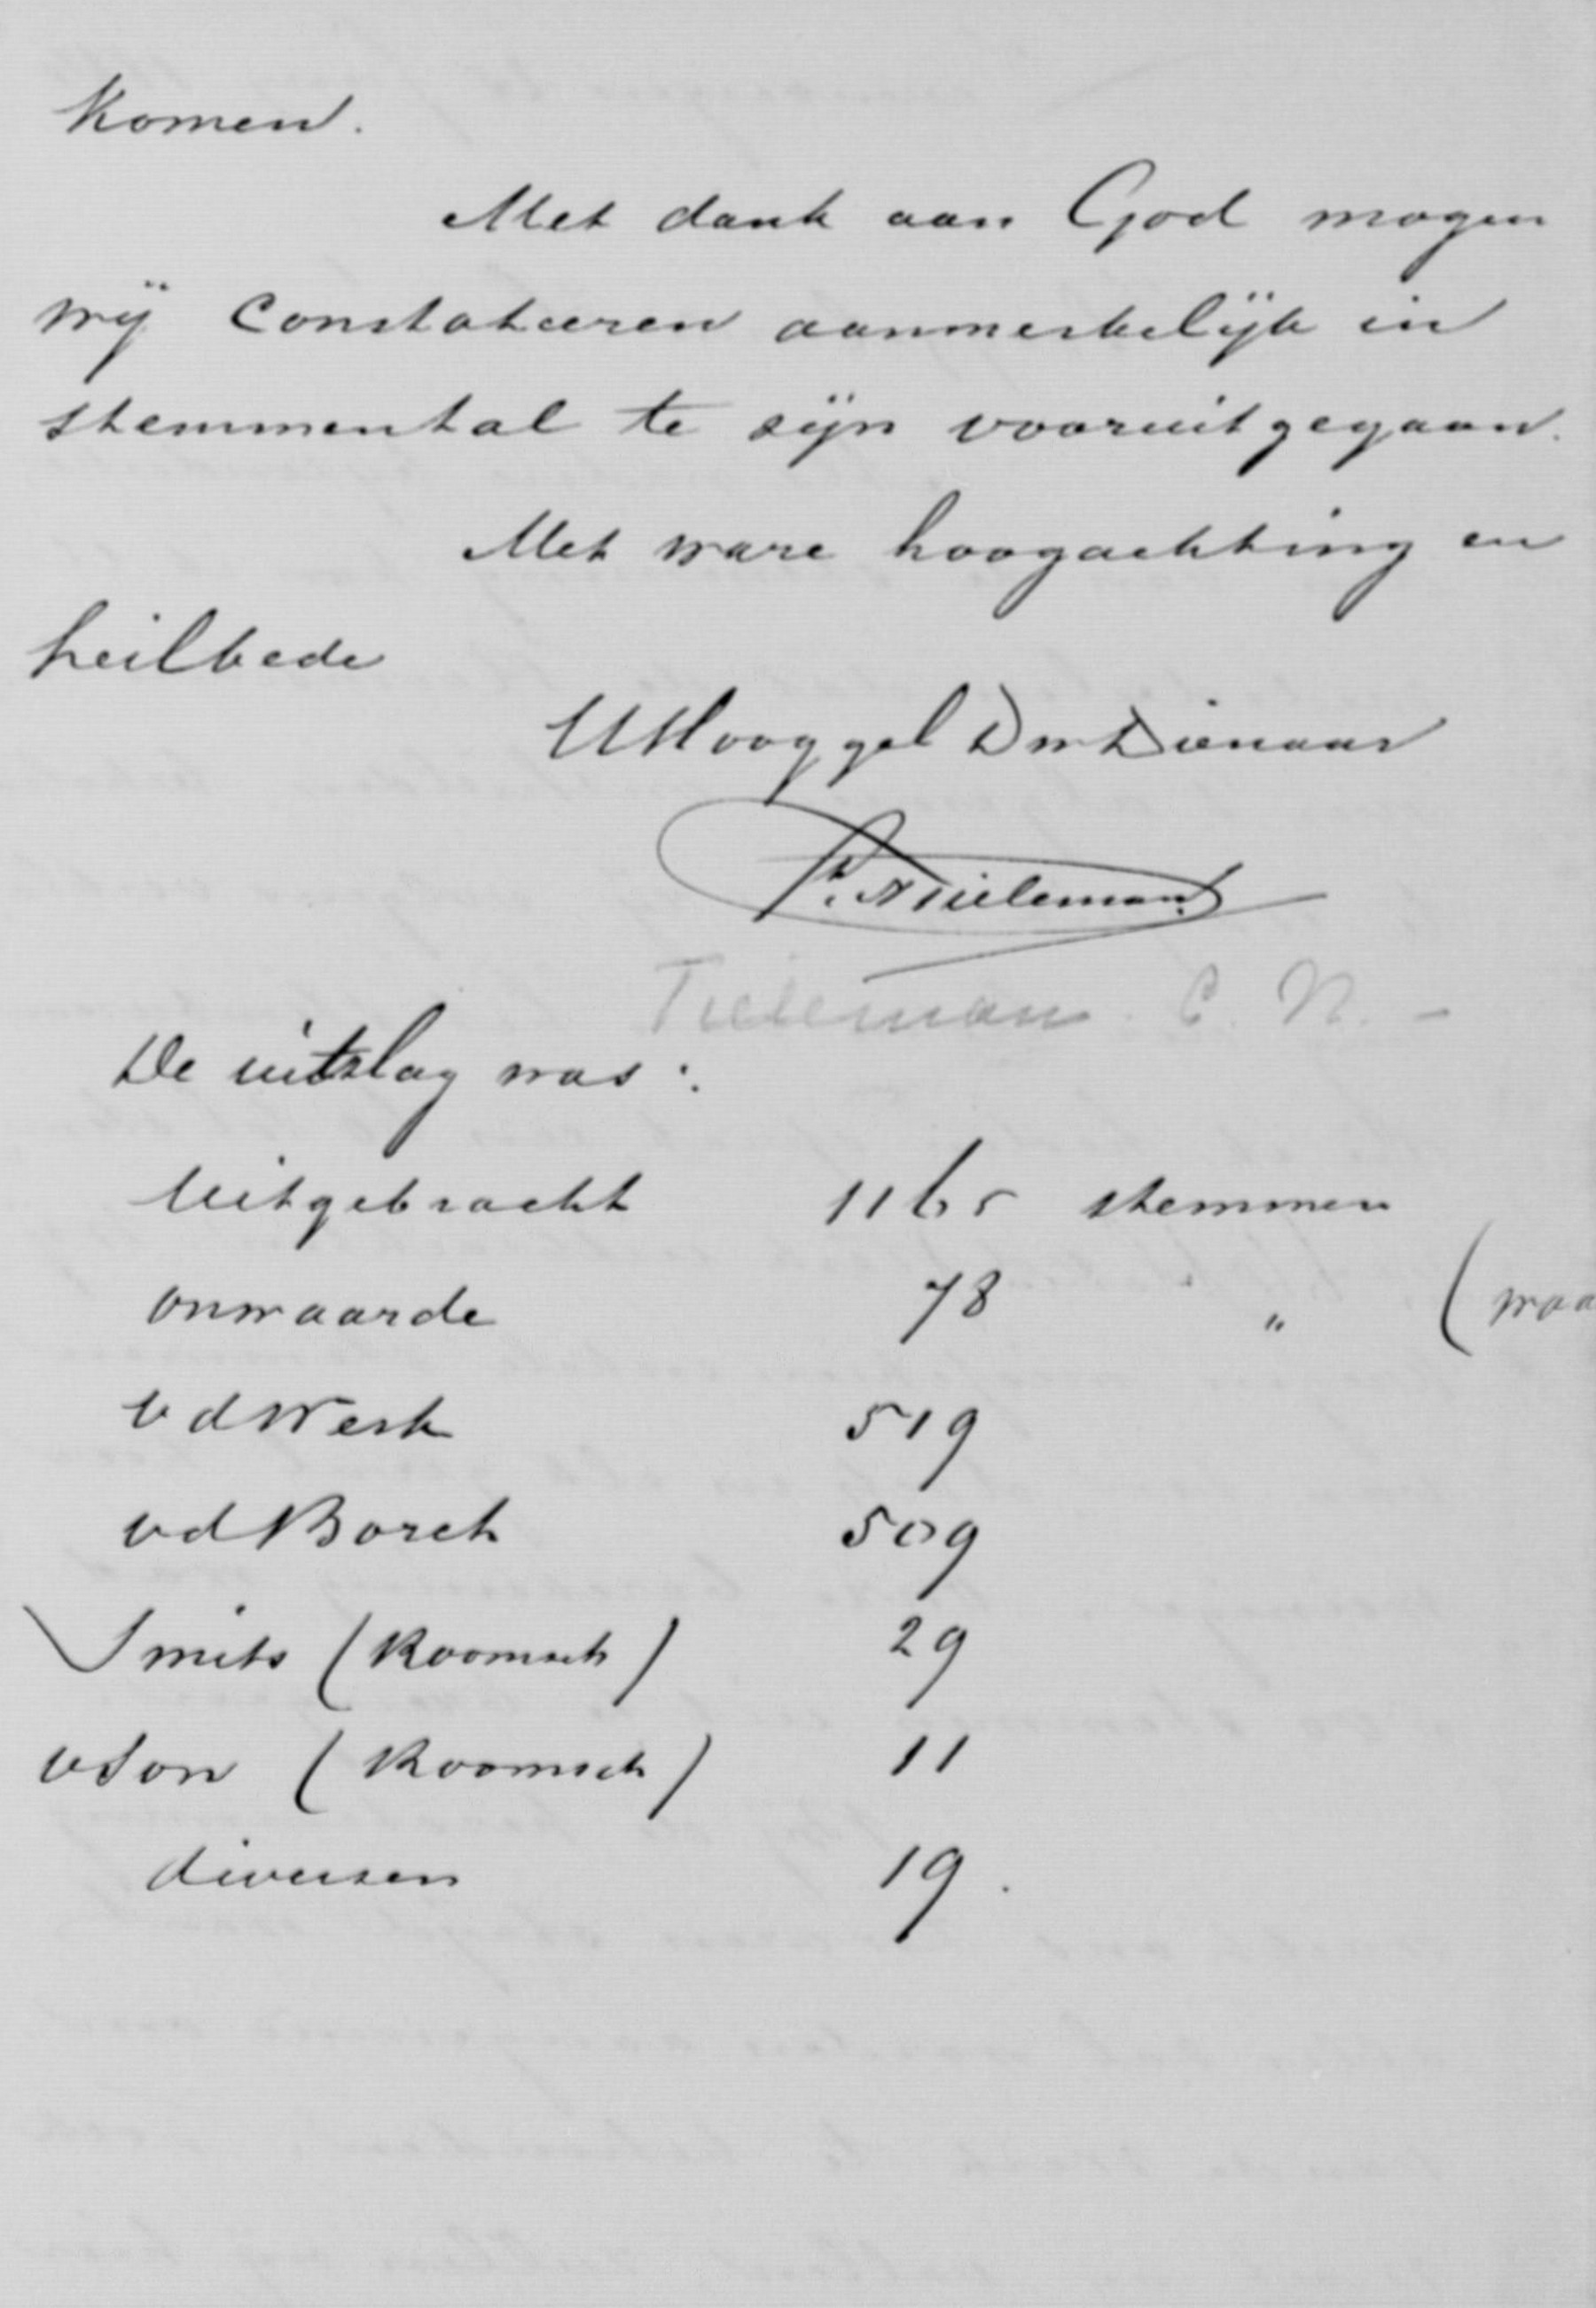 komen.
Met dank aan God mogen
wij Constateeren aanmerkelijk in
stemmental te zijn vooruitgegaan.
Met ware hoogachting en
heilbede
UHooggel Dw Dienaar
Tieleman
Tieleman. C. N. -
De uitslag was:
Uitgebracht 1165 stemmen
onwaarde 78 " (waa
vd Werk 519
vd Borch 509
Smits (Roomsch) 29
v Son (Roomsch) 11
diversen 19.